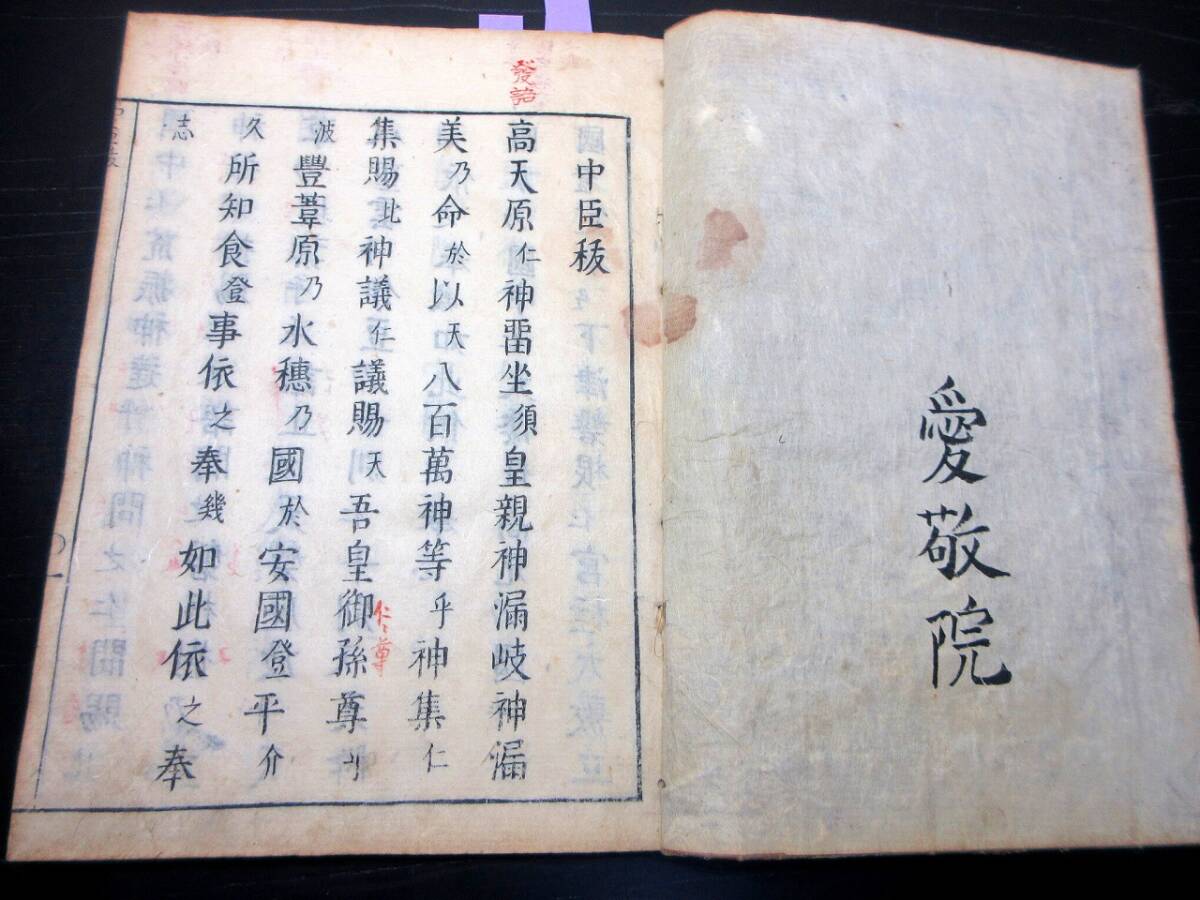 愛敬院
發語
中臣秡
高天原仁神畱坐須皇親神漏岐神漏
美乃命於以天八百萬神等乎神集仁
集賜比神議仁議賜天吾皇御孫尊乎
仁尊
波豐葦原乃水穗乃國於安國登平介
久所知食登事依之奉幾如此依之奉
志